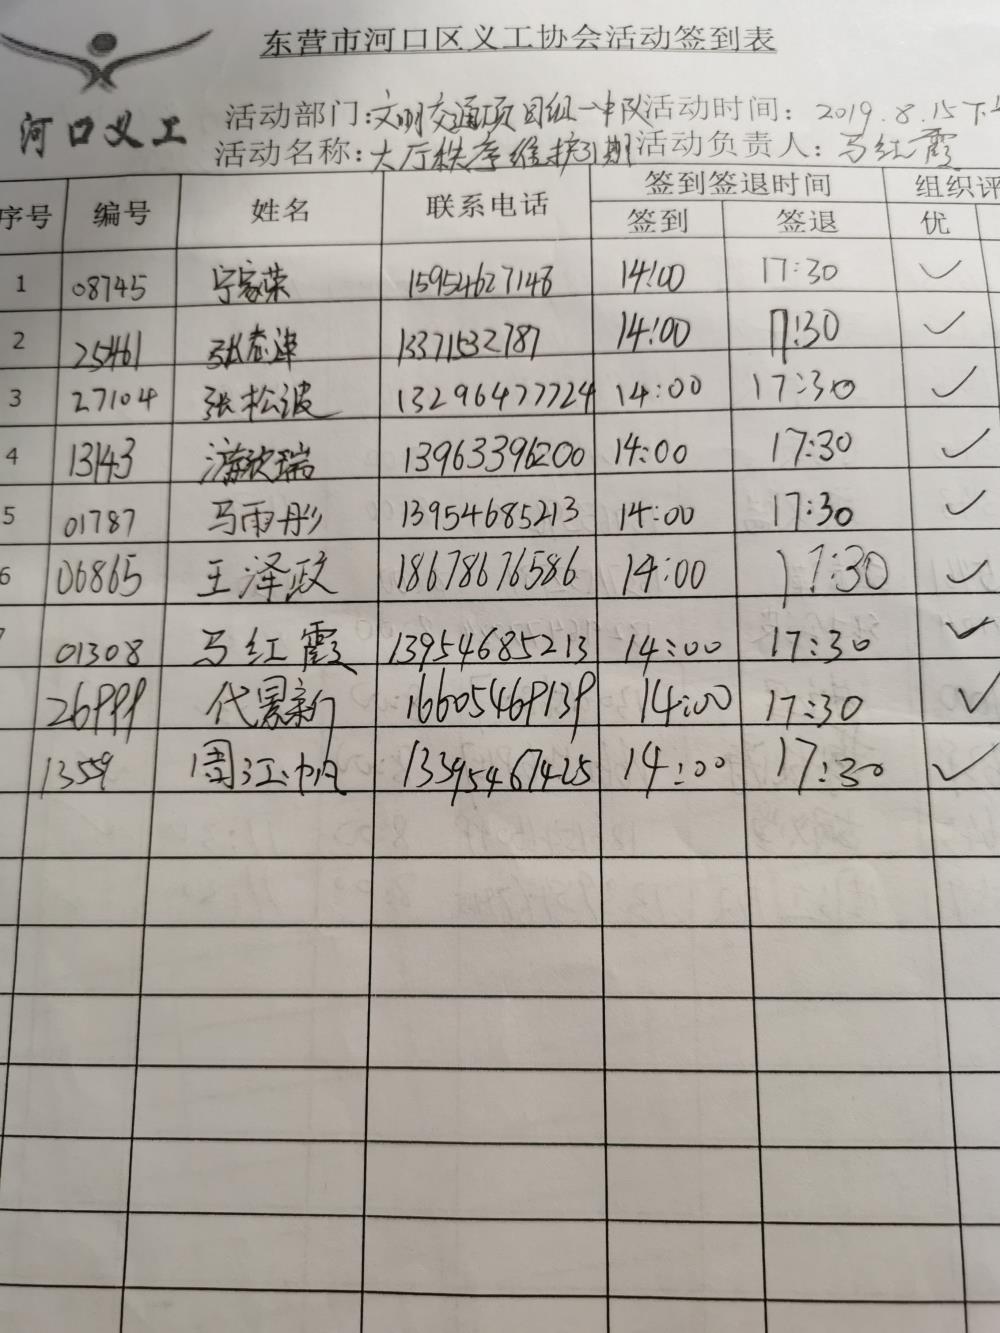 东营市河口区义工协会活动签到表
河口义工
活动部门:文明交通项目组一中队 活动时间: 2019.8.15下
活动名称:大厅秩序维护31期 活动负责人:马红霞
序号 编号 姓名 联系电话 签到签退时间 组织评
签到 签退 优
1 08745 宁家荣 15954627148 14:00 17:30 ✓
2 25461 张 13371532787 14:00 17:30 ✓
3 27104 张松波 13296477724 14:00 17:30 ✓
4 13143 潘欣瑞 13963396200 14:00 17:30 ✓
5 01787 马雨彤 13954685213 14:00 17:30 ✓
6 06865 王泽政 18678676586 14:00 17:30 ✓
01308 马红霞 13954685213 14:00 17:30 ✓
26999 代景新 16605469139 14:00 17:30 ✓
13559 周江帆 13395467425 14:00 17:30 ✓